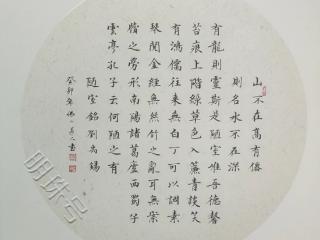 山不在高有僊
則名水不在深
有龍則靈斯是陋室惟吾德馨
苔痕上階綠草色入簾青談笑
有鴻儒往來無白丁可以調素
琴閱金經無絲竹之亂耳無案
牘之勞形南陽諸葛廬西蜀子
雲亭孔子云何陋之有
陋室銘劉禹錫
癸卯年書
明珠号